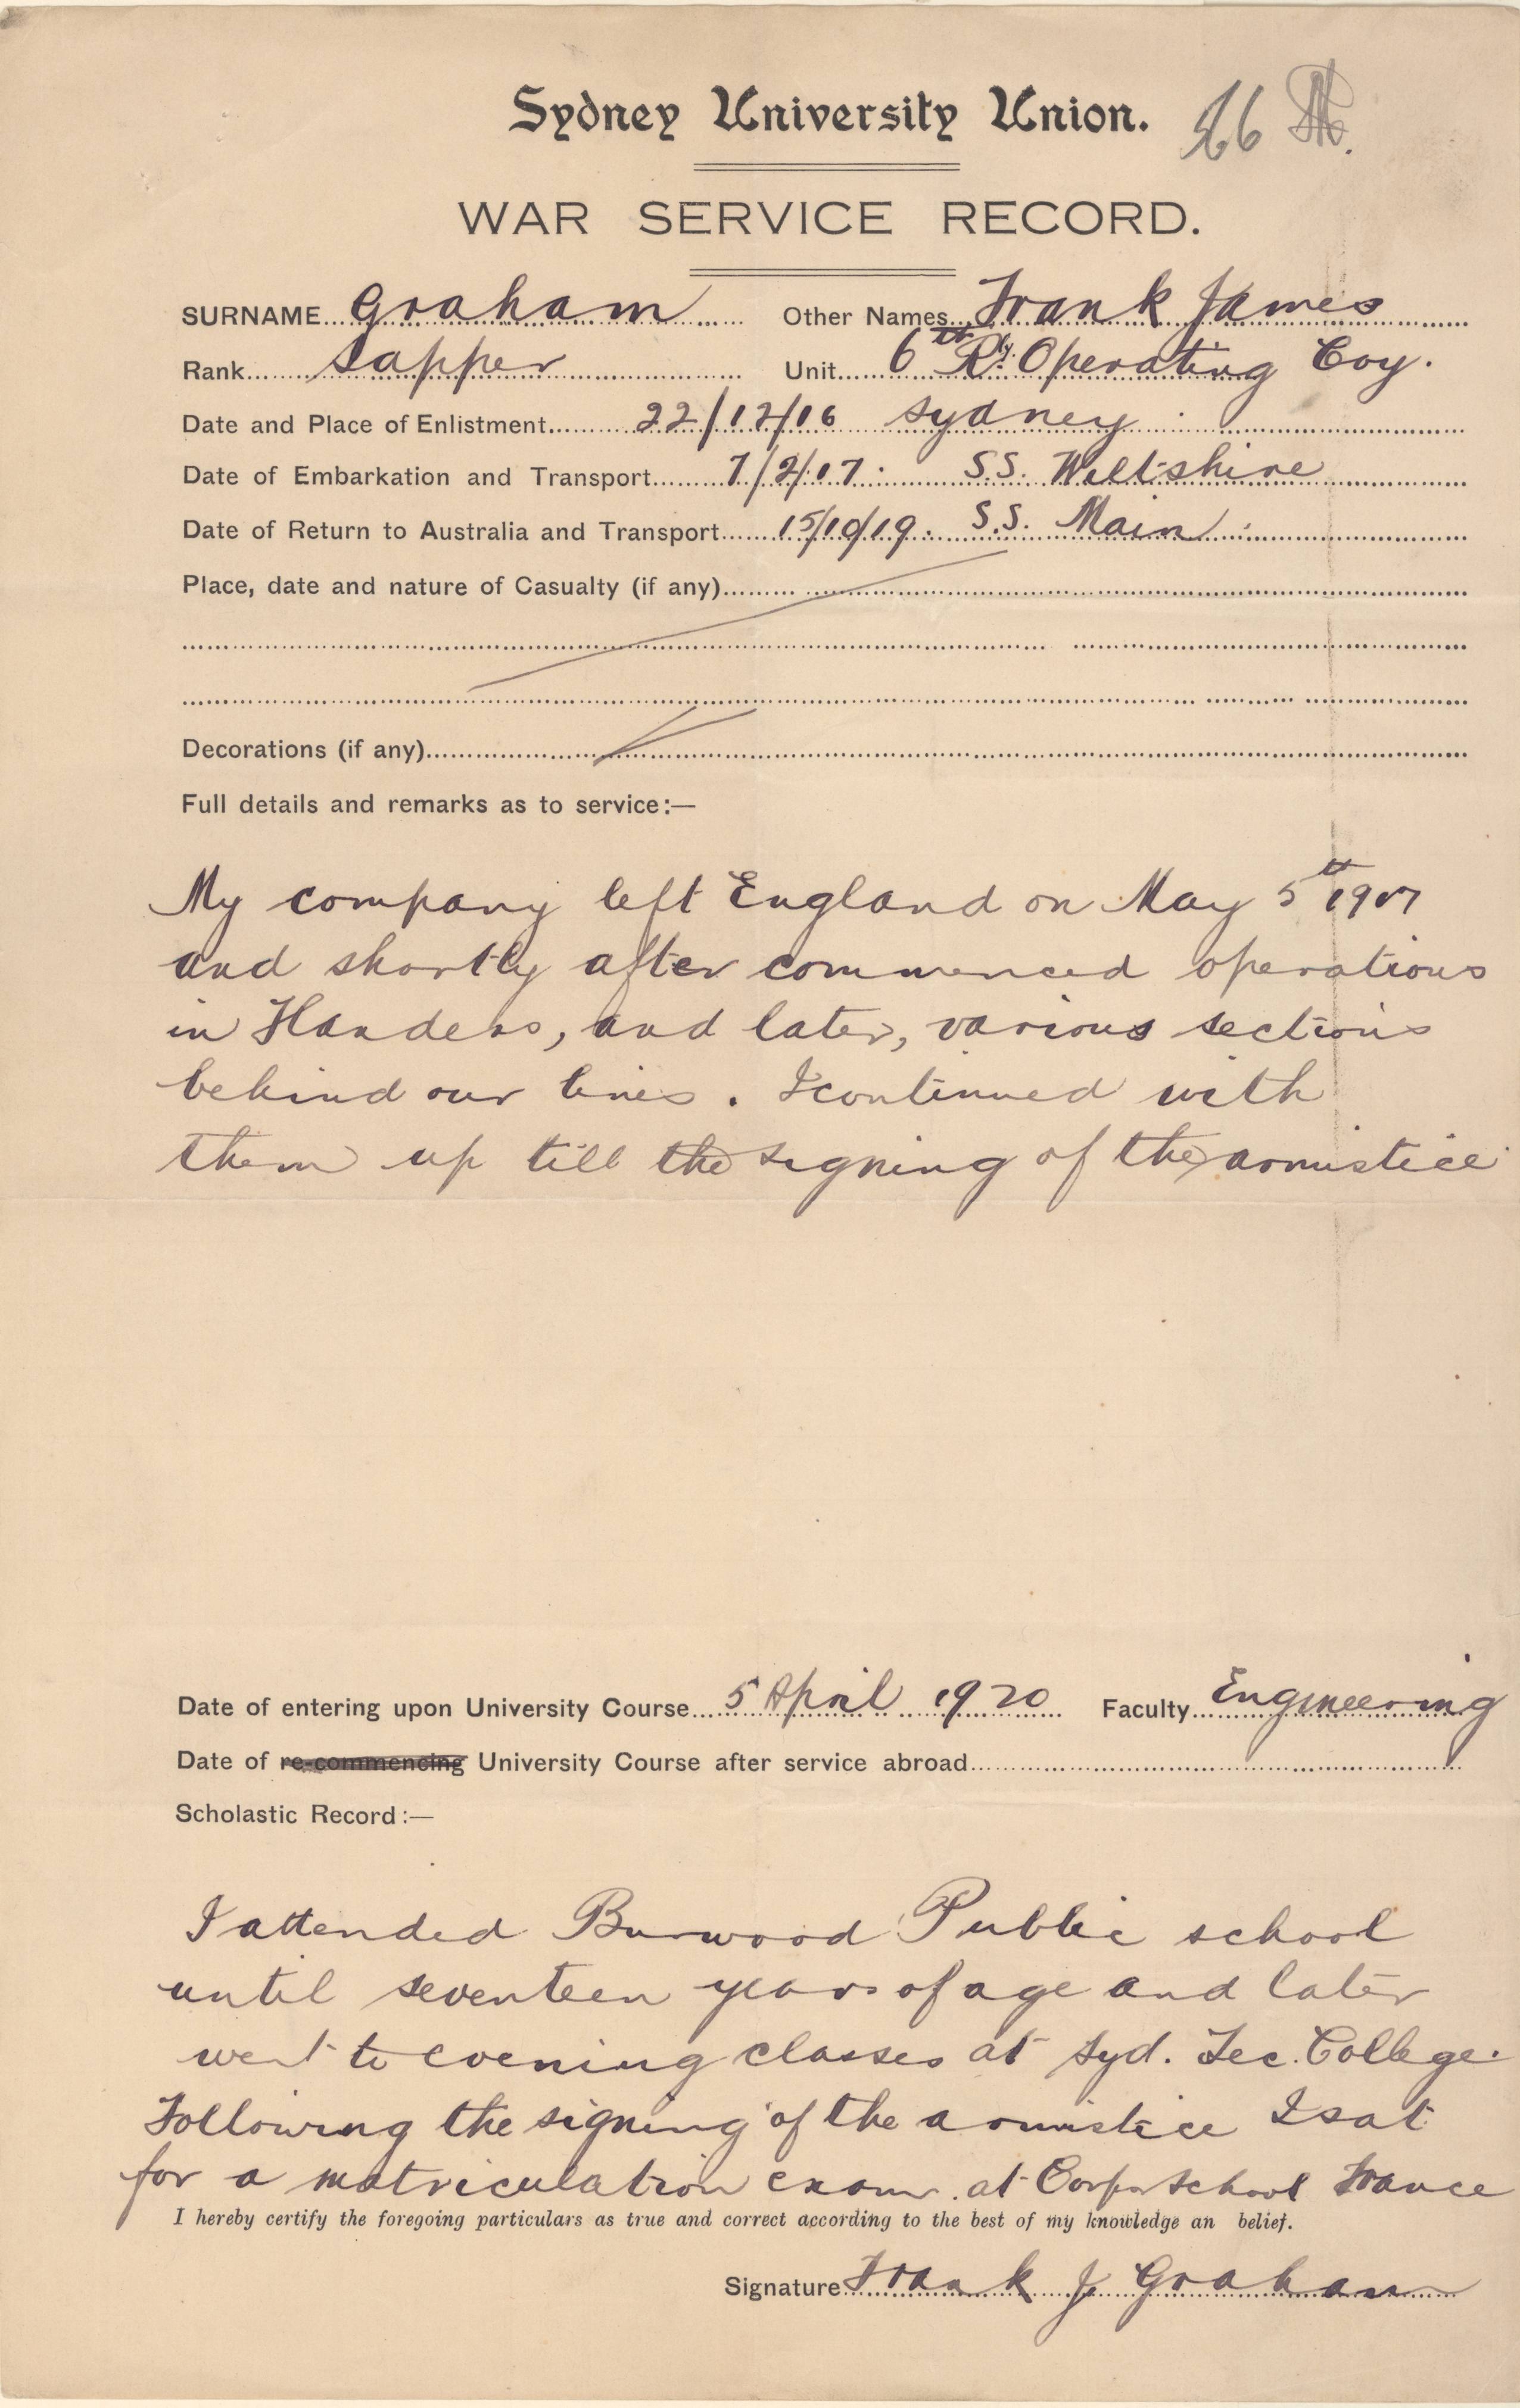 Sydney University Union. 26
WAR SERVICE RECORD.
SURNAME Graham Other Names Frank James
Rank Sapper Unit 6th Rly. Operating Coy.
Date and Place of Enlistment 22/12/16 Sydney
Date of Embarkation and Transport 7/2/17. S.S. Wiltshire
Date of Return to Australia and Transport 15/10/19. S.S. Main
Place, date and nature of Casualty (if any)
Decorations (if any)
Full details and remarks as to service:—
My company left England on May 5th 1917
and shortly after commenced operations
in Flanders, and later, various sections
behind our lines. I continued with
them up till the signing of the armistice
Date of entering upon University Course 5 April 1920 Faculty Engineering
Date of re-commencing University Course after service abroad
Scholastic Record:—
I attended Burwood Public school
until seventeen years of age and later
went to evening classes at Syd. Tec. College.
Following the signing of the armistice I sat
for a matriculation exam. at Corps school France
I hereby certify the foregoing particulars as true and correct according to the best of my knowledge an belief.
Signature Frank J. Graham